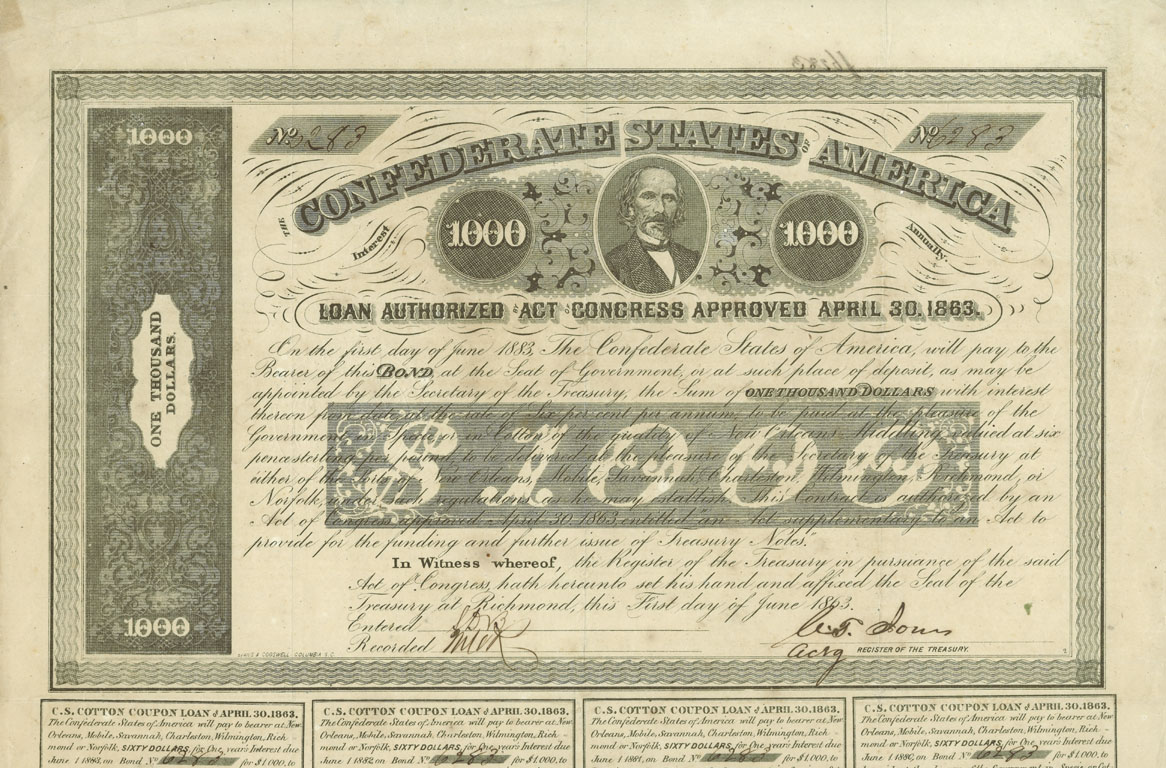 1000
No 6283
No 6283
THE CONFEDERATE STATES OF AMERICA
Interest
1000
1000
Annually.
LOAN AUTHORIZED BY ACT OF CONGRESS APPROVED APRIL 30, 1863.
On the first day of June 1883, The Confederate States of America, will pay to the
Bearer of this BOND, at the Seat of Government, or at such place of deposit, as may be
appointed by the Secretary of the Treasury, the Sum of ONE THOUSAND DOLLARS with interest
thereon from date at the rate of Six per cent per annum, to be paid at the pleasure of the
Government, in Specie, or in Cotton of the quality of New Orleans Middling, valued at six
pence sterling per pound to be delivered at the pleasure of the Secretary of the Treasury at
either of the Ports of New Orleans, Mobile, Savannah, Charleston, Wilmington, Richmond, or
Norfolk, under such regulations as he may establish. This Contract is authorized by an
Act of Congress approved April 30, 1863 entitled "an Act supplementary to an Act to
provide for the funding and further issue of Treasury Notes."
$1000
ONE THOUSAND
DOLLARS.
In Witness whereof, the Register of the Treasury in pursuance of the said
Act of Congress, hath hereunto set his hand and affixed the Seal of the
Treasury at Richmond, this First day of June 1863.
Entered
Recorded
1000
Acty REGISTER OF THE TREASURY.
COGSWELL COLUMBIA S.C.
C.S. COTTON COUPON LOAN of APRIL 30, 1863.
The Confederate States of America will pay to bearer at New
Orleans, Mobile, Savannah, Charleston, Wilmington, Rich-
mond or Norfolk, SIXTY DOLLARS, for One years Interest due
June 1 1883, on Bond No 6283 for $1,000, to
C.S. COTTON COUPON LOAN of APRIL 30, 1863.
The Confederate States of America will pay to bearer at New
Orleans, Mobile, Savannah, Charleston, Wilmington, Rich-
mond or Norfolk, SIXTY DOLLARS, for One years Interest due
June 1 1882, on Bond No 6283 for $1,000, to
C.S. COTTON COUPON LOAN of APRIL 30, 1863.
The Confederate States of America will pay to bearer at New
Orleans, Mobile, Savannah, Charleston, Wilmington, Rich-
mond or Norfolk, SIXTY DOLLARS, for One years Interest due
June 1 1881, on Bond No 6283 for $1,000, to
C.S. COTTON COUPON LOAN of APRIL 30, 1863.
The Confederate States of America will pay to bearer at New
Orleans, Mobile, Savannah, Charleston, Wilmington, Rich-
mond or Norfolk, SIXTY DOLLARS, for One years Interest due
June 1 1880, on Bond No 6283 for $1,000, to